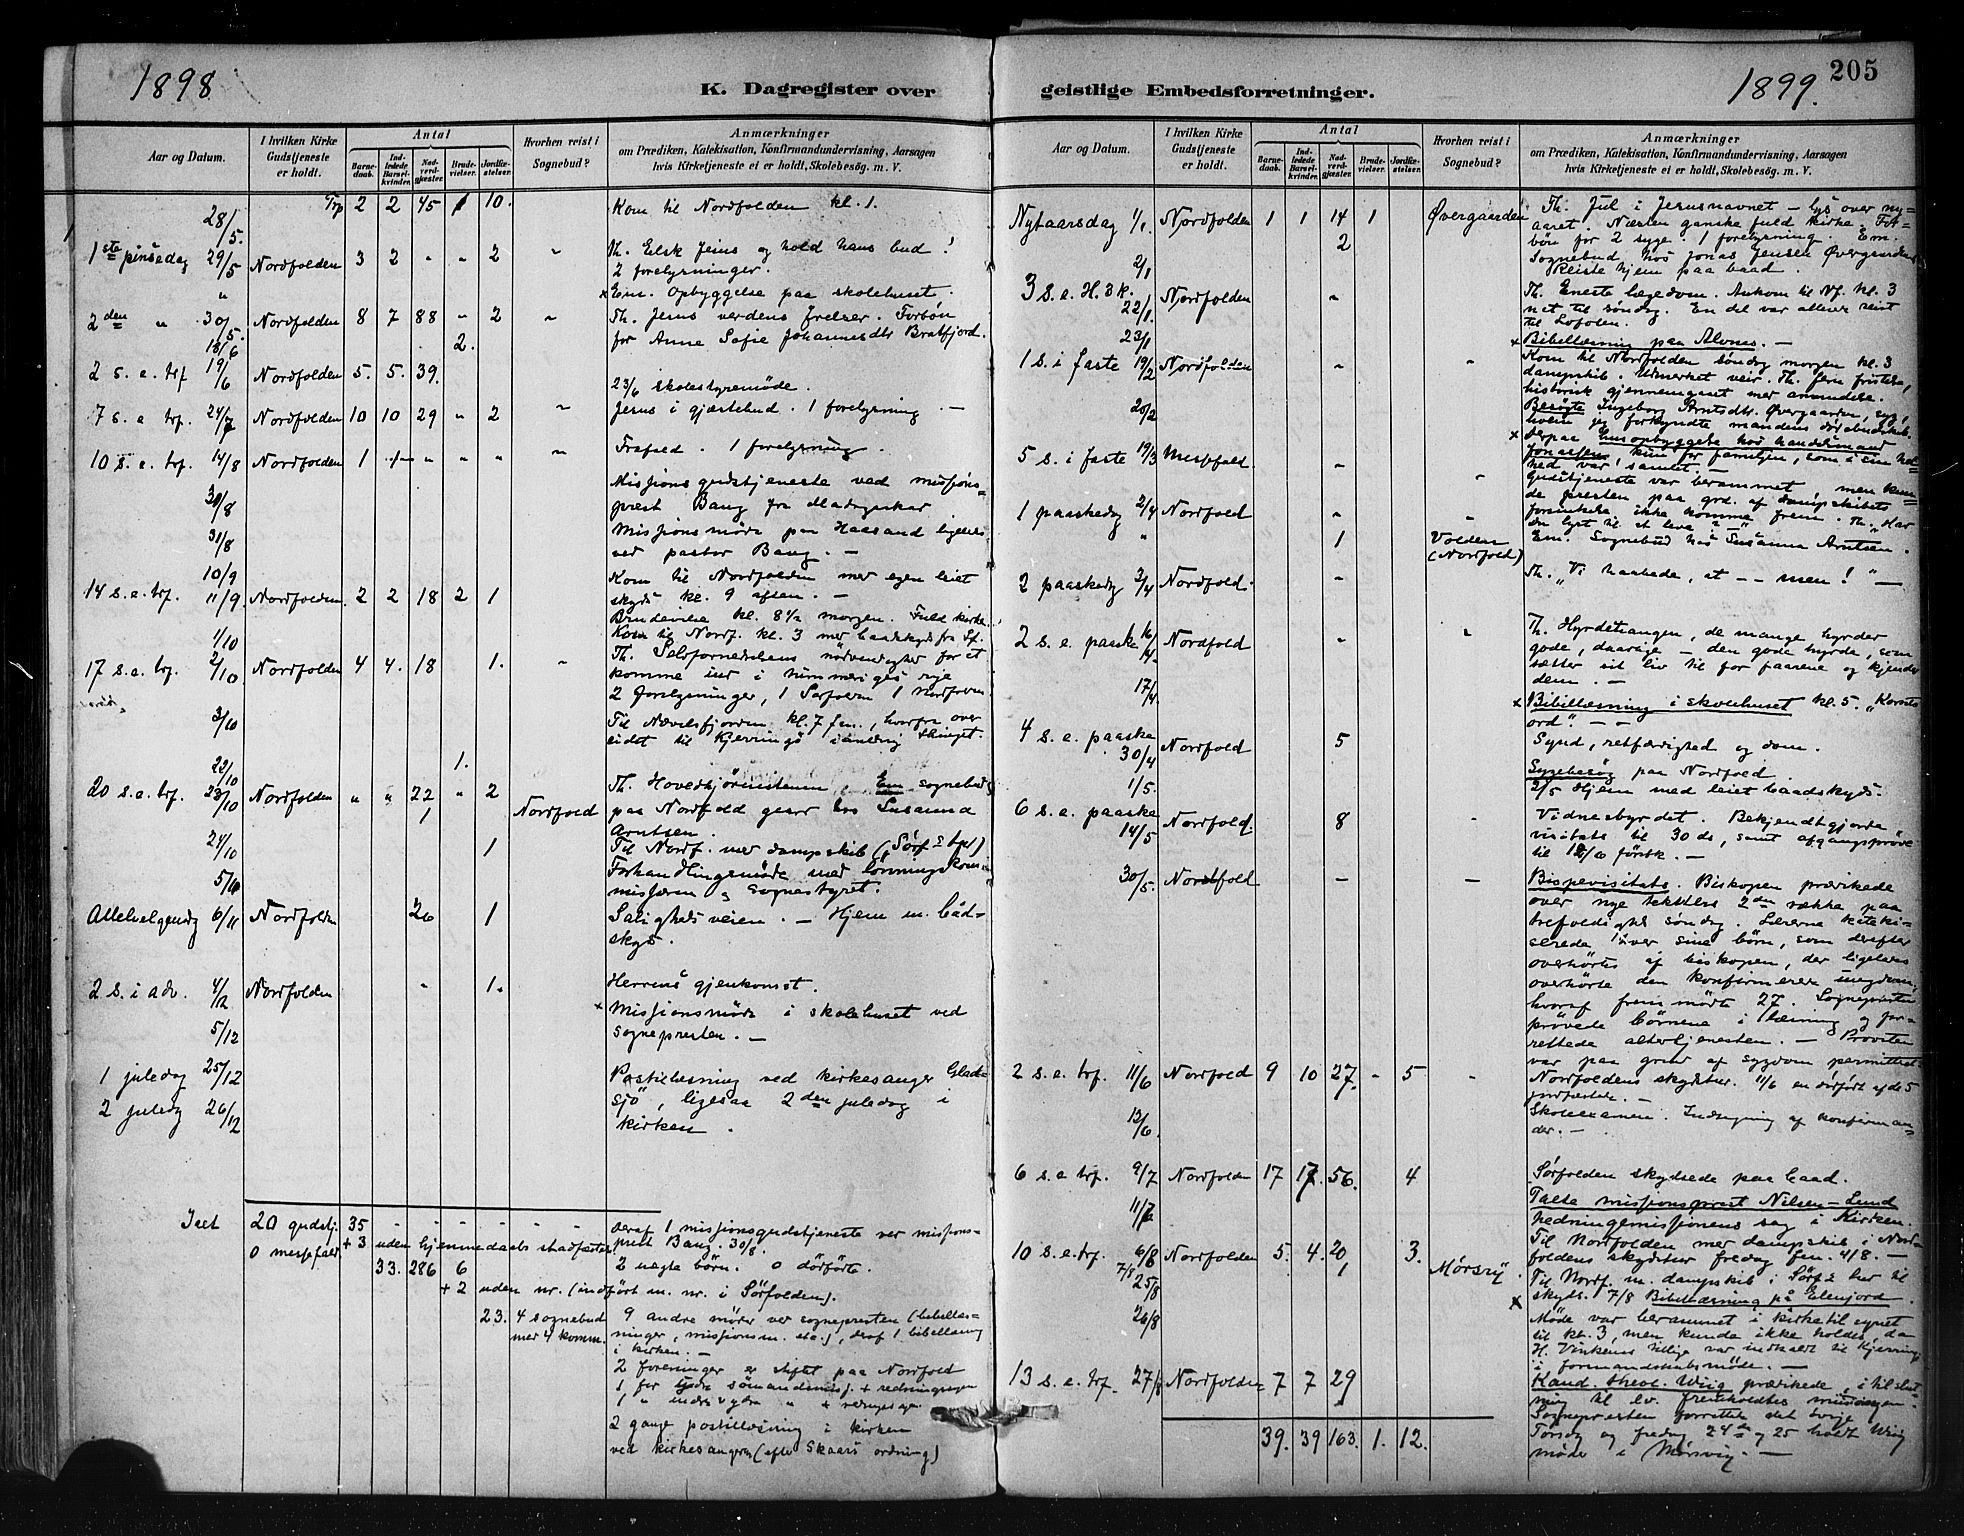 1898
K. Dagregister over
Aar og Datum.
I hvilken Kirke Gudstjeneste er holdt.
Antal
Barnedaab.
Indledede Barselkvinder.
Nadverdgjæster.
Brudevielser.
Jordfæstelser.
Hvorhen reist i Sognebud?
Anmærkninger
om Prædiken, Katekisation, Konfirmandundervisning, Aarsagen
hvis Kirketjeneste ei er holdt, Skolebesøg. m. V.
28/5. 2 2 45 1 10. Kom til Nordfolden kl. 1.
1ste pinsedag 29/5 Nordfolden 3 2 " " 2 " Th. Elsk Jesus og hold hans bud!
2 forelysninger.
Em. Opbyggelse paa skolehuset.
2den " 30/5. Nordfolden 8 7 88 " 2 " Th. Jesus verdens frelser. Forbøn
18/6 2. for Anne Sofie Johannesdtr Bratfjord.
2 s. e. trf 19/6 Nordfolden 5. 5. 39.
23/6 skolestyremöde.
7 s. e trf. 24/7 Nordfolden 10 10 29 " 2 " Jesus i gjæstebud. 1 forelysning. —
10 s. e. trf. 14/8 Nordfolden 1 1 — " " " " Frafald. 1 forelysning.
30/8 Missionsgudstjeneste ved missions-
prest Bang fra Madagaskar
31/8 Missionsmöde paa Haasand ligeledes
ved pastor Bang. —
10/9 Kom til Nordfolden med egen leiet
14 s. e. trf. 11/9. Nordfolden. 2 2 18 2 1 skyds kl. 9 aften. —
Brudevielse kl. 8½ morgen. Fuld kirke.
1/10 Kom til Nordf. kl. 3 med baadskyds fra Sf.
17 s. e. trf. 2/10 Nordfolden 4 4. 18 1. " Th. Selvfornedelsens nödvendighet for at
komme ind i himmeriges rige
2 forelysninger, 1 Sörfolden 1 Nordfolden
3/10 Til Nævelsfjorden kl. 7 fm., hvorfra over
eidet til Kjerringö
22/10 1.
20 s. e. trf. 23/10 Nordfolden " " 22 " 2 Th. Hovedhjörnestenen. Em sognebud
1 Nordfold paa Nordfold gaard hos Susanna
Arntsen.
24/10 1 Til Nordf. med dampskib
5/11 Forhandlingsmöde med lönningskom-
missæren og sognestyret.
Allehelgensdg 6/11 Nordfolden 20 1 Salighedsveien. — Hjem m. båd-
skyds.
2 s. i adv. 4/12 Nordfolden " 1. Herrens gjenkomst.
× Missionsmöde i skolehuset ved
5/12 sognepresten. —
1 juledag 25/12 Postillæsning ved kirkesanger Glad-
sjö, ligesaa 2den juledag i
2 juledg 26/12 kirken.
Ialt 20 gudstj. 35 - - - - - deraf 1 missionsgudstjeneste ved missions-
0 messefald + 3 uden hjemmedaabs stadfæstet. prest Bang. 30/8.
33. 286 6 2 uegte börn. 0 dödföte.
+ 2 uden nr. (indfört m. nr. i Sörfolden).
23. 4 sognebud 9 andre möder ved sognepresten (bibellæs-
med 4 komm. ninger, missionsm. etc.), deraf 1 bibellæsning
i kirken. —
2 foreninger er stiftet paa Nordfold
1, for sömandsmisj. + redningssagen
1 " indre & ydre " +
2 gange postillæsning i kirken
ved kirkesangeren (efter Skaars ordning)
geistlige Embedsforretninger.
1899.
205
Aar og Datum.
I hvilken Kirke Gudstjeneste er holdt.
Antal
Barnedaab.
Indledede Barselkvinder.
Nadverdgjæster.
Brudevielser.
Jordfæstelser.
Hvorhen reist i Sognebud?
Anmærkninger
om Prædiken, Katekisation, Konfirmandundervisning, Aarsagen
hvis Kirketjeneste ei er holdt, Skolebesøg. m. V.
Nytaarsdag 1/1. Nordfolden 1 1 14 1 Øvergaarden Th. Jul i Jesusnavnet — lys over ny-
2 aaret. Næsten ganske fuld kirke. For-
bön for 2 syge. 1 forelysning. Em.
Sognebud hos Jonas Jensen Øvergaarden
2/1 Reiste hjem paa baad.
3 s. e. H. 3 k. 22/1. Nordfolden " Th. Eneste lægedom. Ankom til Nf. kl. 3
nat til söndag. En del var allerede reist
til Lofoten.
23/1 × Bibellæsning paa Alvnes. —
1 s. i faste 19/2 Nordfolden " " Kom til Nordfolden söndag morgen kl. 3
dampskib. Udmerket veir. Th. Jesu fristelse,
historisk gjennemgaaet med anvendelse.
20/2 Besögte Ingeborg Arntsdtr. Øvergaarden, syg,
hvem jeg forkyndte mandens dödsbudskab.
× Derpaa husopbyggelse hos handelsmand
5 s. i faste 19/3 Messefald. " Jonassen, kun for familjen, som i sin hel-
hed var samlet. —
" Gudstjeneste var berammet men kun-
de presten paa grd. af dampskibets
1 paaskedg 2/4 Nordfold " " forsinkelse ikke komme frem. Th. „Har
du lyst til at leve?" —
" 1 Volden (Nordfold) Em. Sognebud hos Susanna Arntsen.
2 paaskedg 3/4 Nordfold. " Th. „Vi haabede, at — — men!" —
2 s. e. paaske 16/4. Nordfold " " Th. Hyrdetrangen, de mange hyrder
gode, daarlige — den gode hyrde, som
sætter sit liv til for faarene og kjender
17/4 dem. —
× Bibellæsning i skolehuset kl. 5. „Korsets
ord". — —
4 s. e. paaske 30/4 Nordfold 5 Synd, retfærdighed og dom.
1/5. Sygebesög paa Nordfold.
2/5 Hjem med leiet baadskyds.
6 s. e. paaske 14/5 Nordfold. 8 " Vidnesbyrdet. Bekjendtgjorde
visitats til 30 ds, samt afgangspröve
til 12/6 förstk. —
30/5. Nordfold — — Bispevisitats. Biskopen prædikede
over nye tekstles 2den række paa
trefoldigheds söndag. Lærerne kateki-
serede over sine börn, som derefter
overhörtes af biskopen, der ligeledes
overhörte den konfirmerede ungdom,
hvoraf fremmödte 27. Sognepresten
prövede börnene i læsning og for-
rettede altertjenesten. — Provsten
var paa grund af sygdom permitteret.
2 s. e. trf. 11/6 Nordfold 9 10 27. - 5 " Nordfoldens skydstur. 11/6 en dödfödt af de 5
jordfæstede. —
12/6. Skoleexamen. Indtegning af konfirman-
der. —
6 s. e trf. 9/7 Nordfolden 17 17. 56. 4 Sörfolden skydsede paa baad.
11/7 Talte missionsprest Nilsen-Lund
hedningemissionens sag i Kirken.
10 s. e. trf. 6/8 Nordfolden 5. 4. 20 3. Til Nordfolden med dampskib i Nord-
foldens skydstur fredag fm. 4/8. —
7/8 1 Mørsvig.
25/8 Til Nordf. m. dampskib i Sörf's tur til
skyds. 7/8 Bibellæsning på Elvfjord.
26/8 × Möde var berammet i kirketilsynet
til kl. 3, men kunde ikke holdes, da
H. Vinkenes tillige var indkaldt til Kjerringö
i formandskabsmöde. —
13 s. e. trf. 27/8 Nordfolden 7 7 29 Kand. theol. Wiig prædikede, i tilslut-
ning til ev. fremholdtes missionen.
Sognepresten forrettet det övrige.
39. 39 163. 1. 12. Torsdg og fredag 24de og 25 holdt Wiig
möde i Mørsvig. —